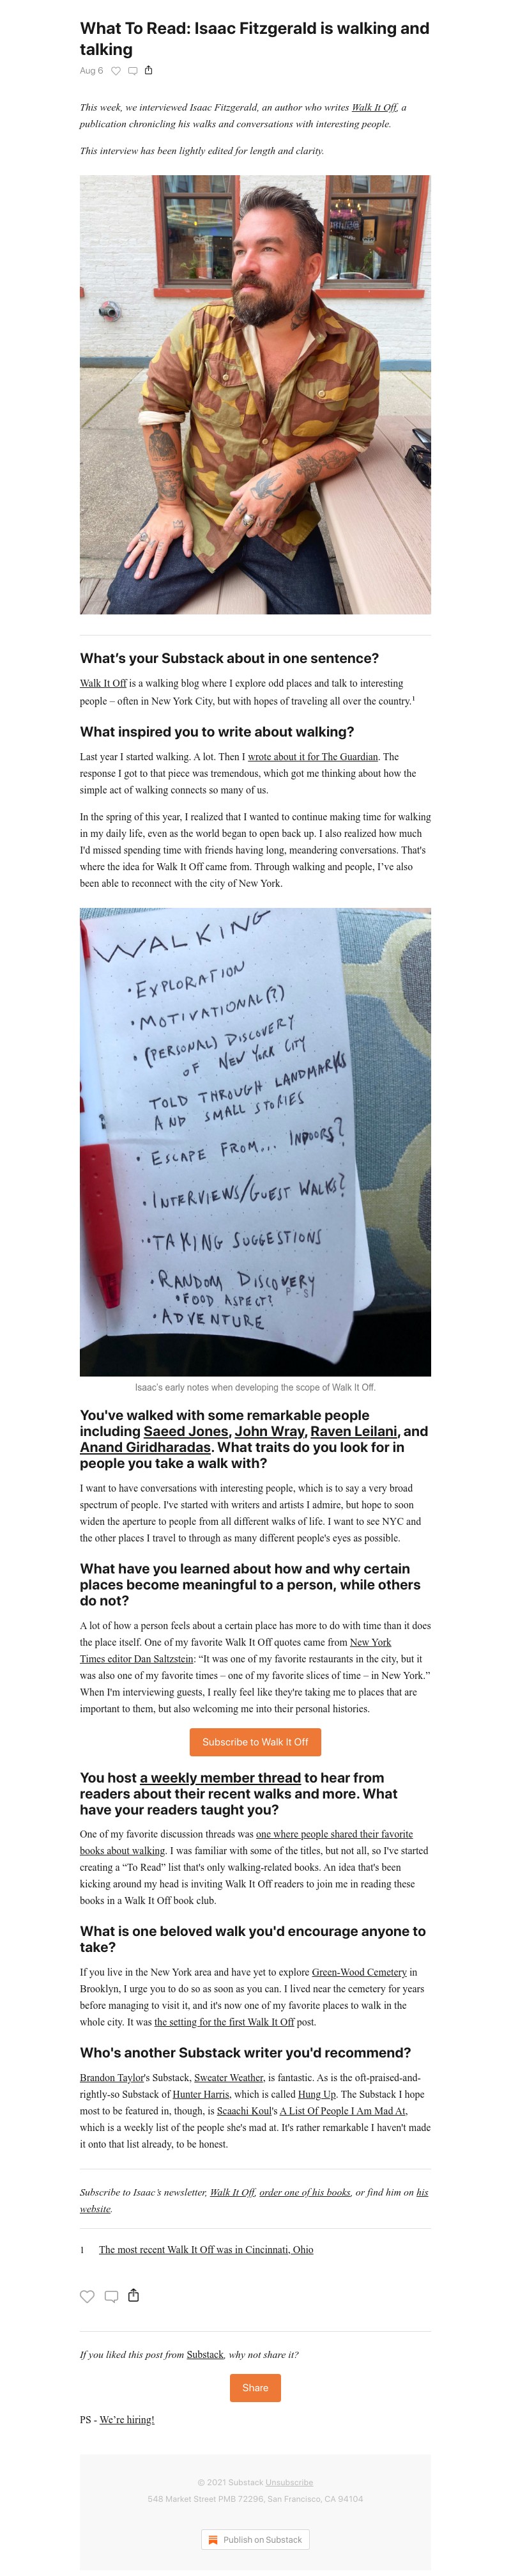 What To Read: Isaac Fitzgerald is walking and
talking
Aug 6
This week, we interviewed Isaac Fitzgerald, an author who writes Walk It Off, a
publication chronicling his walks and conversations with interesting people.
This interview has been lightly edited for length and clarity.
What’s your Substack about in one sentence?
Walk It Off is a walking blog where I explore odd places and talk to interesting
people – often in New York City, but with hopes of traveling all over the country.1
What inspired you to write about walking?
Last year I started walking. A lot. Then I wrote about it for The Guardian. The
response I got to that piece was tremendous, which got me thinking about how the
simple act of walking connects so many of us.
In the spring of this year, I realized that I wanted to continue making time for walking
in my daily life, even as the world began to open back up. I also realized how much
I'd missed spending time with friends having long, meandering conversations. That's
where the idea for Walk It Off came from. Through walking and people, I’ve also
been able to reconnect with the city of New York.
WALKING
• EXPLORATION
• MOTIVATIONAL(?)
• (PERSONAL) DISCOVERY
OF NEW YORK CITY
TOLD THROUGH LANDMARKS
AND SMALL STORIES
• ESCAPE FROM... INDOORS?
• INTERVIEWS/GUEST WALKS?
• TAKING SUGGESTIONS
• RANDOM DISCOVERY
• FOOD ASPECT? P-S
• ADVENTURE
Isaac’s early notes when developing the scope of Walk It Off.
You've walked with some remarkable people
including Saeed Jones, John Wray, Raven Leilani, and
Anand Giridharadas. What traits do you look for in
people you take a walk with?
I want to have conversations with interesting people, which is to say a very broad
spectrum of people. I've started with writers and artists I admire, but hope to soon
widen the aperture to people from all different walks of life. I want to see NYC and
the other places I travel to through as many different people's eyes as possible.
What have you learned about how and why certain
places become meaningful to a person, while others
do not?
A lot of how a person feels about a certain place has more to do with time than it does
the place itself. One of my favorite Walk It Off quotes came from New York
Times editor Dan Saltzstein: “It was one of my favorite restaurants in the city, but it
was also one of my favorite times – one of my favorite slices of time – in New York.”
When I'm interviewing guests, I really feel like they're taking me to places that are
important to them, but also welcoming me into their personal histories.
Subscribe to Walk It Off
You host a weekly member thread to hear from
readers about their recent walks and more. What
have your readers taught you?
One of my favorite discussion threads was one where people shared their favorite
books about walking. I was familiar with some of the titles, but not all, so I've started
creating a “To Read” list that's only walking-related books. An idea that's been
kicking around my head is inviting Walk It Off readers to join me in reading these
books in a Walk It Off book club.
What is one beloved walk you'd encourage anyone to
take?
If you live in the New York area and have yet to explore Green-Wood Cemetery in
Brooklyn, I urge you to do so as soon as you can. I lived near the cemetery for years
before managing to visit it, and it's now one of my favorite places to walk in the
whole city. It was the setting for the first Walk It Off post.
Who's another Substack writer you'd recommend?
Brandon Taylor's Substack, Sweater Weather, is fantastic. As is the oft-praised-and-
rightly-so Substack of Hunter Harris, which is called Hung Up. The Substack I hope
most to be featured in, though, is Scaachi Koul's A List Of People I Am Mad At,
which is a weekly list of the people she's mad at. It's rather remarkable I haven't made
it onto that list already, to be honest.
Subscribe to Isaac’s newsletter, Walk It Off, order one of his books, or find him on his
website.
1 The most recent Walk It Off was in Cincinnati, Ohio
If you liked this post from Substack, why not share it?
Share
PS - We’re hiring!
© 2021 Substack Unsubscribe
548 Market Street PMB 72296, San Francisco, CA 94104
Publish on Substack